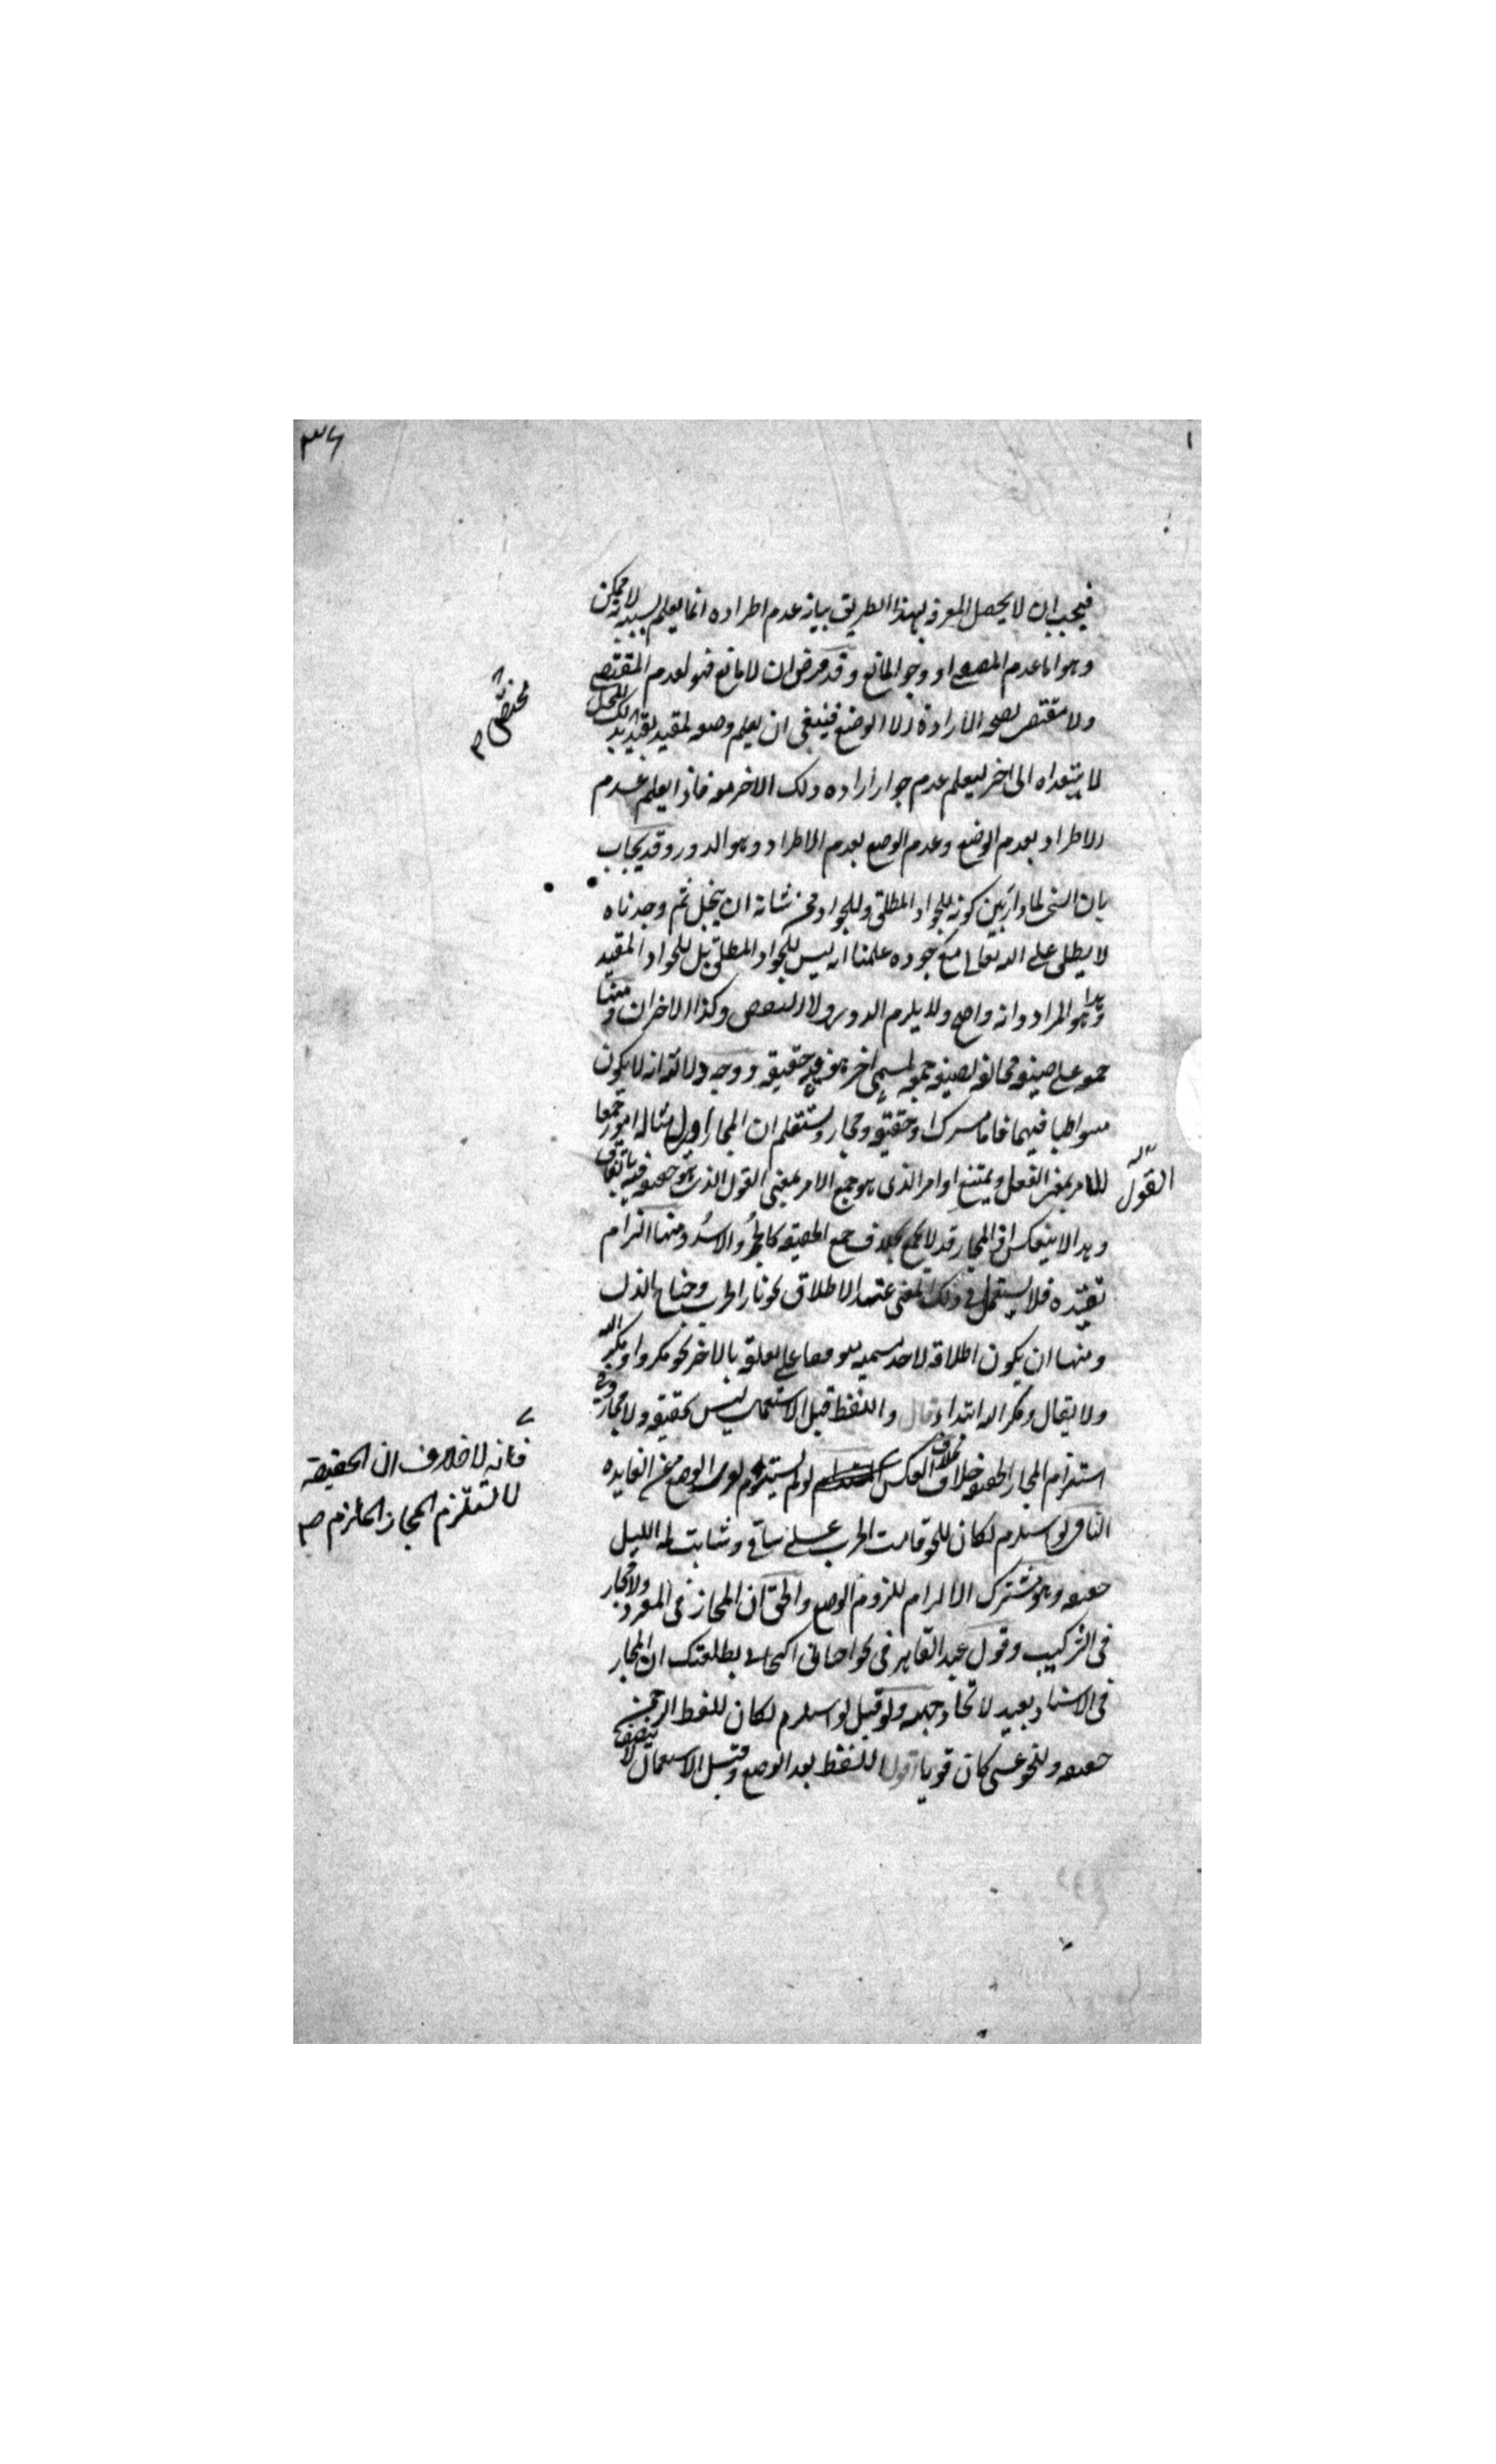 ٣٦
فيجب ان لا يحصل المعرفة بهذا الطريق بيانه عدم اطراده انما يعلم بسببه لانه ممكن
وهو اما عدم المقتضى او وجود المانع وقد فرض ان لا مانع فهو لعدم المقتضى
ولا مقتضى لصحة الارادة الا الوضع فينبغى ان يعلم وضعه لمقيد بقيد بذلك المحل
مختص
لا يتعداه الى اخر ليعلم عدم جواز ارادة ذلك الاخر منه فاذا يعلم عدم
الاطراد بعدم الوضع وعدم الوضع بعدم الاطراد وهو الدور وقد يجاب
بان السخى لما دار بين كونه للجواد المطلق وللجواد ممن شانه ان يبخل ثم وجدناه
لا يطلق على الله تعالى مع جوده علمنا انه ليس للجواد المطلق بل للجواد المقيد
وهذا هو المراد وانه واضح ولا يلزم الدور ولا النقض وكذا الاخران ومنها
جمعه على صيغة مخالفة لصيغة جمعه لمسمى اخر هو فيه حقيقة ووجه دلالته انه لا يكون
متواطيا فيهما فاما مشترك او حقيقة ومجاز وستعلم ان المجاز اولى مثاله امور جمعا
للامر بمعنى الفعل ويمتنع اوامر الذى هو جمع الامر بمعنى القول الذى هو حقيقة فيه باتفاق
القول
وهذا لا ينعكس اذ المجاز قد لا يجمع بخلاف جمع الحقيقة كالحُمُر والاُسُد ومنها التزام
تقييده فلا يستعمل فى ذلك المعنى عند الاطلاق نحو نار الحرب وجناح الذل
ومنها ان يكون اطلاقه لاحد مسمييه متوقفا على تعلقه بالاخر نحو مكروا ومكر الله
ولا يقال ومكر الله ابتداء قال واللفظ قبل الاستعمال ليس بحقيقة ولا مجاز وفى
استلزام المجاز الحقيقة خلاف بخلاف العكس لو لم يستلزم لعرى الوضع عن الفايده
فانه لا خلاف ان الحقيقة
لا تستلزم المجاز الملزم صح
النافى لو استلزم لكان لنحو قامت الحرب على ساق وشابت لمة الليل
حقيقة وهو مشترك الالزام للزوم الوضع والحق ان المجاز فى المفرد ولا مجاز
فى التركيب وقول عبد القاهر فى نحو احيانى اكتحالى بطلعتك ان المجاز
فى الاسناد بعيد لاتحاد جهته ولو قيل لو استلزم لكان للفظ الرحمن
حقيقة ولنحو عسى كان قويا اقول اللفظ بعد الوضع وقبل الاستعمال لا يتصف